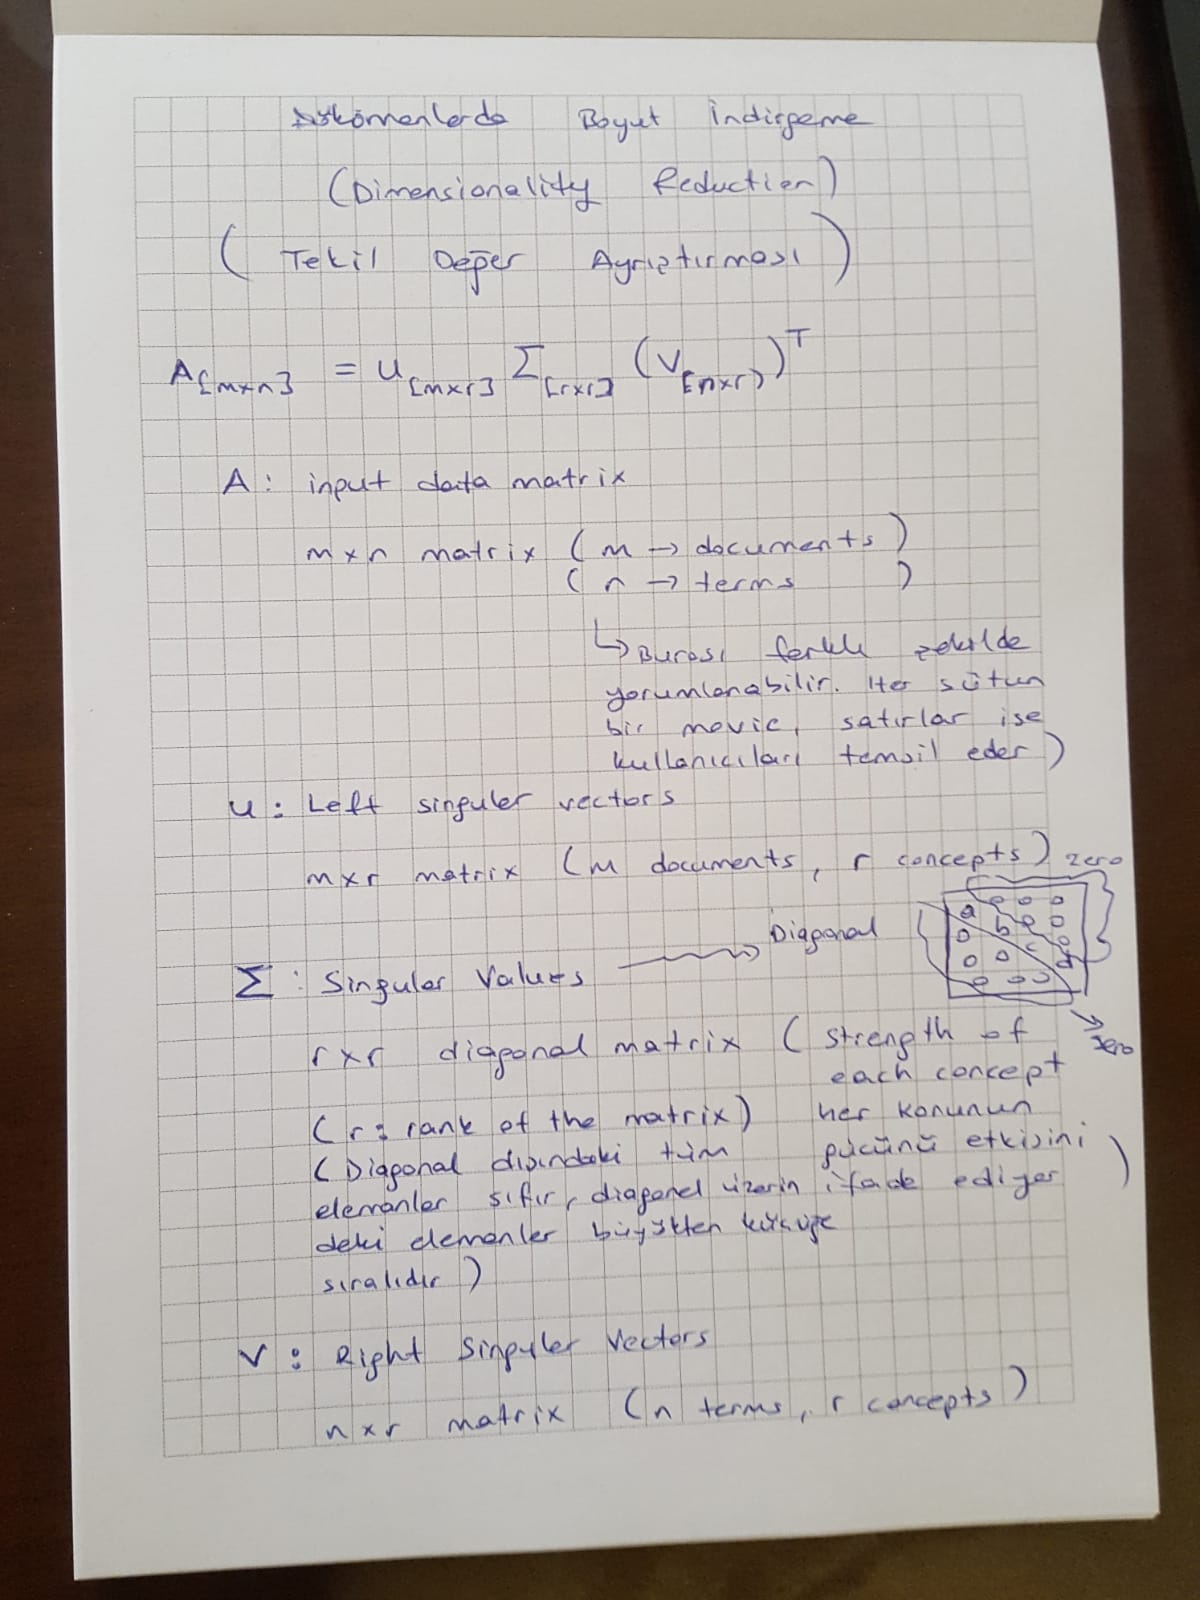 Dökümanlarda Boyut İndirgeme
(Dimensionality Reduction)
( Tekil Değer Ayrıştırması )
A[mxn] = U[mxr] Σ[rxr] (V[nxr])ᵀ
A : input data matrix
mxn matrix ( m → documents )
( n → terms )
↳ Burası farklı şekilde
yorumlanabilir. Her sütun
bir movie, satırlar ise
kullanıcıları temsil eder )
U : Left singuler vectors
mxr matrix (m documents, r concepts)
zero
Diagonal
a 0 0 0
0 b 0 0
0 0 c 0
0 0 0 d
zero
Σ : Singular Values
rxr diagonal matrix ( strength of
each concept
her konunun
gücünü etkisini
ifade ediyor )
(r : rank of the matrix)
(Diagonal dışındaki tüm
elemanlar sıfır, diagonal üzerin
deki elemanlar büyükten küçüğe
sıralıdır )
V : Right Singuler Vectors
nxr matrix (n terms, r concepts)